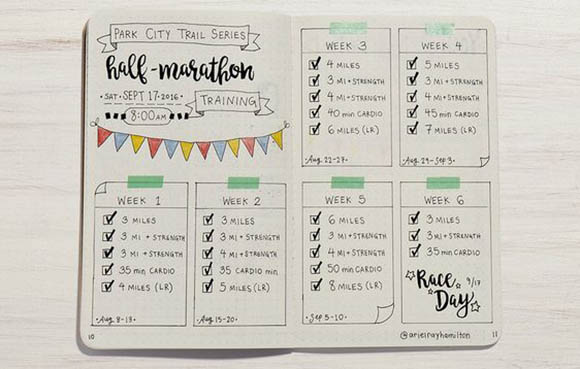 PARK CITY TRAIL SERIES
half-marathon
·SAT· SEPT 17·2016·
TRAINING
8:00AM
WEEK 1
3 MILES
3 MI + STRENGTH
3 MI + STRENGTH
35 min CARDIO
4 MILES (LR)
·Aug 8-13·
WEEK 2
3 MILES
3 MI + STRENGTH
4 MI + STRENGTH
35 CARDIO min
5 MILES (LR)
·Aug 15-20·
10
WEEK 3
4 MILES
3 MI + STRENGTH
4 MI + STRENGTH
40 min CARDIO
6 MILES (LR)
·Aug 22-27·
WEEK 4
5 MILES
3 MI + STRENGTH
4 MI + STRENGTH
45 min CARDIO
7 MILES (LR)
·Aug 29-Sep 3·
WEEK 5
6 MILES
3 MI + STRENGTH
4 MI + STRENGTH
50 min CARDIO
8 MILES (LR)
·Sep 5-10·
WEEK 6
3 MILES
3 MI + STRENGTH
35 min CARDIO
Race 9/17
Day
@arielrayhamilton
11